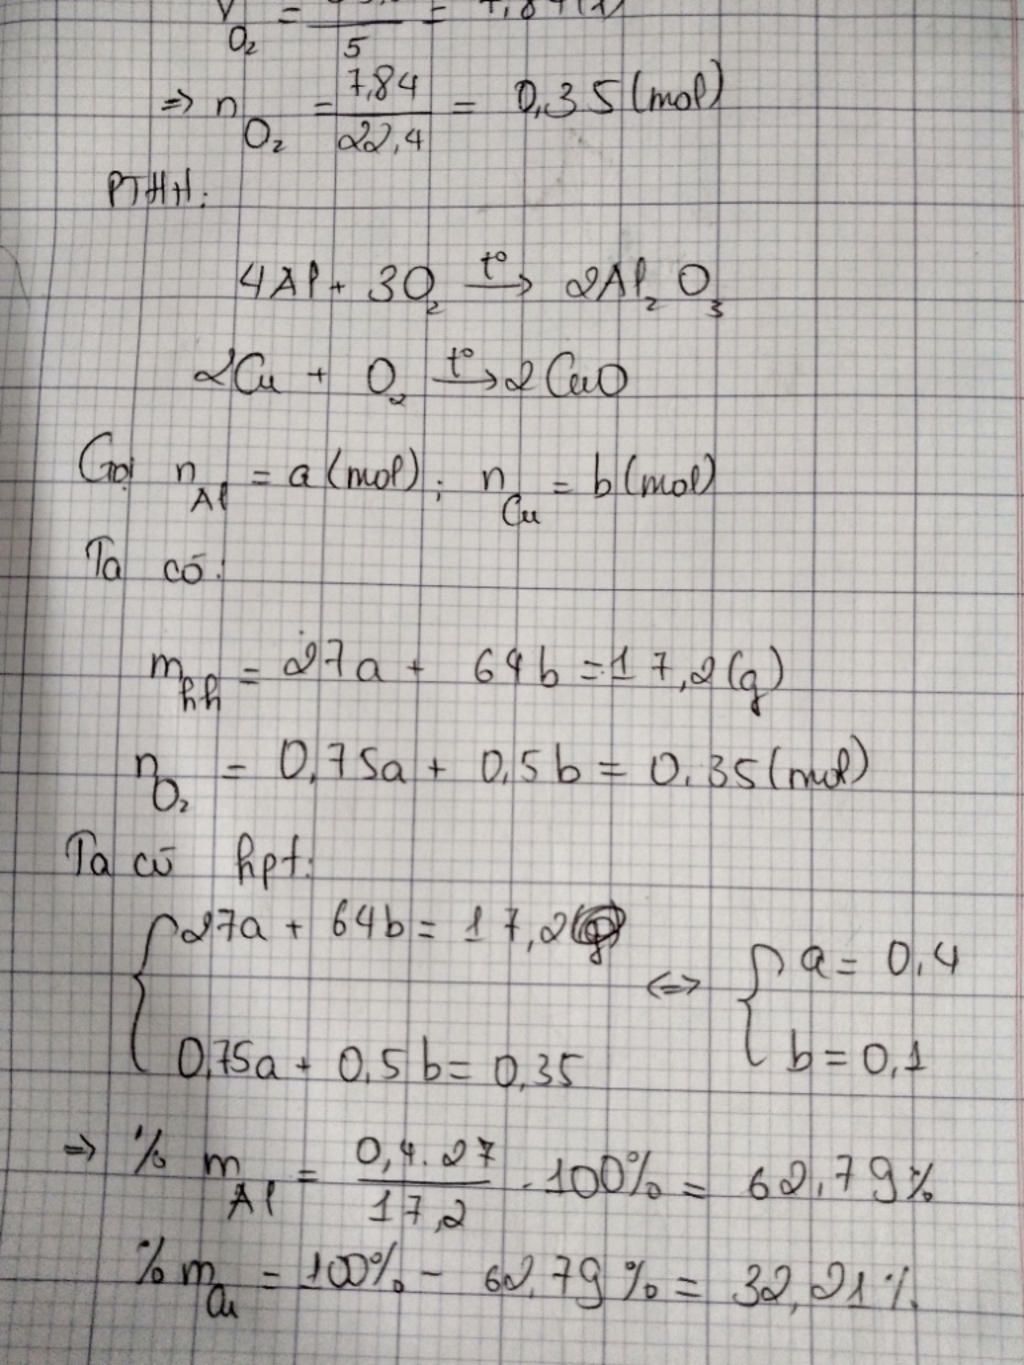 V O₂ = / 5 = 7,84 (l)
=> n O₂ = 7,84 / 22,4 = 0,35 (mol)
PTHH:
4Al + 3O₂ t° → 2Al₂O₃
2Cu + O₂ t° → 2CuO
Gọi n Al = a (mol); n Cu = b (mol)
Ta có:
m hh = 27a + 64b = 17,2 (g)
n O₂ = 0,75a + 0,5b = 0,35 (mol)
Ta có hpt:
{ 27a + 64b = 17,2
<=> { a = 0,4
0,75a + 0,5b = 0,35
b = 0,1
=> % m Al = 0,4.27 / 17,2 . 100% = 62,79%
% m Cu = 100% - 62,79% = 32,21%